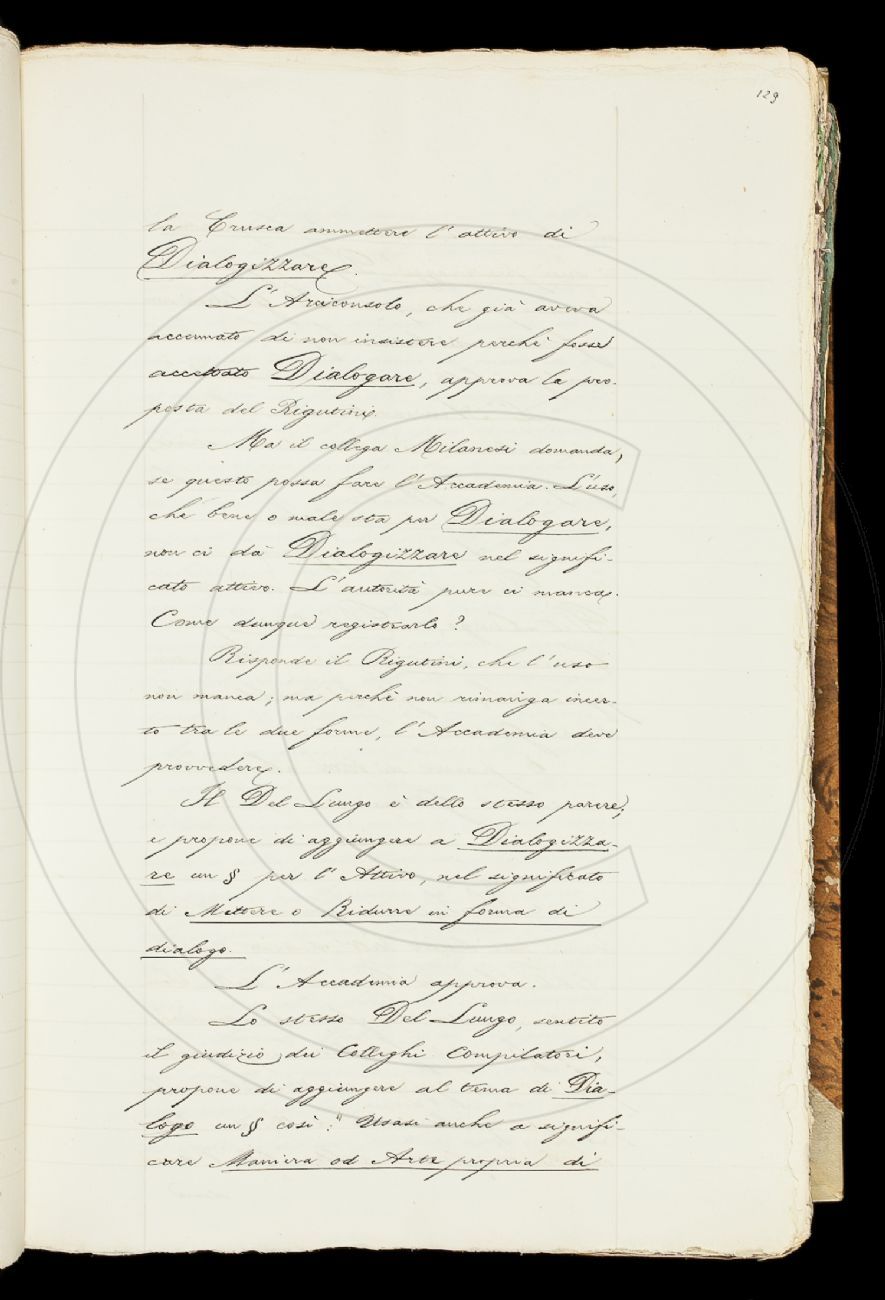 129
la Crusca ammettere l'attivo di
Dialogizzare.
L'Arciconsolo, che già aveva
accennato di non insistere perchè fosse
accettato Dialogare, approva la pro-
posta del Rigutini.
Ma il collega Milanesi domanda,
se questo possa fare l'Accademia. L'uso,
che bene o male sta per Dialogare,
non ci dà Dialogizzare nel signifi-
cato attivo. L'autorità pure ci manca.
Come dunque registrarlo?
Risponde il Rigutini, che l'uso
non manca; ma perchè non rimanga incer-
to tra le due forme, l'Accademia deve
provvedere.
Il Del Lungo è dello stesso parere;
e propone di aggiungere a Dialogizza-
re un § per l'Attivo, nel significato
di Mettere o Ridurre in forma di
dialogo.
L'Accademia approva.
Lo stesso Del Lungo, sentito
il giudizio dei Colleghi Compilatori,
propone di aggiungere al tema di Dia-
logo un § così: "Usasi anche a signifi-
care Maniera od Arte propria di